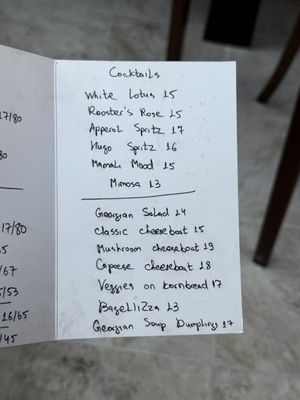 17/80
80
17/80
5
/67
5/53
16/65
/45
Cocktails
White Lotus 15
Rooster's Rose 15
Apperol Spritz 17
Hugo Spritz 16
Mamali Mood 15
Mimosa 13
Georgian Salad 14
Classic cheeseboat 15
Mushroom cheeseboat 19
Capaese cheeseboat 18
Veggies on Kornbread 17
Bagellizza 13
Georgian Soup Dumplings 17